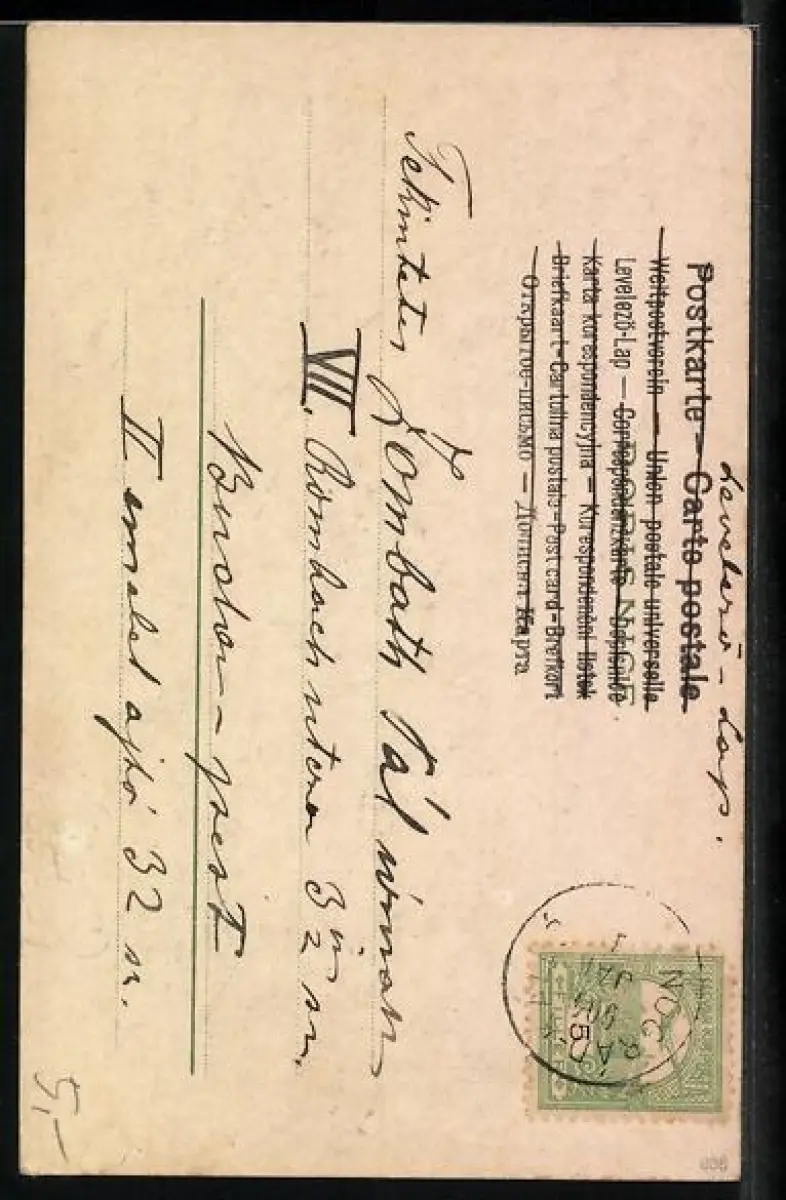 Levelező-Lap.
Postkarte — Carte postale
Weltpostverein — Union postale universelle
Levelező-Lap — Correspondenzkarte Dopisnice
Karta korespondencyjna — Korespondenční lístek
Briefkaart-Cartolina postale-Post card-Brefkort
Открытое-письмо — Дописна Карта
Tekintetes Zombath Pál úrnak
VII. Rombach utcza 3 sz.
Buda-pest
II emelet ajtó 32 sz.
5
5,-